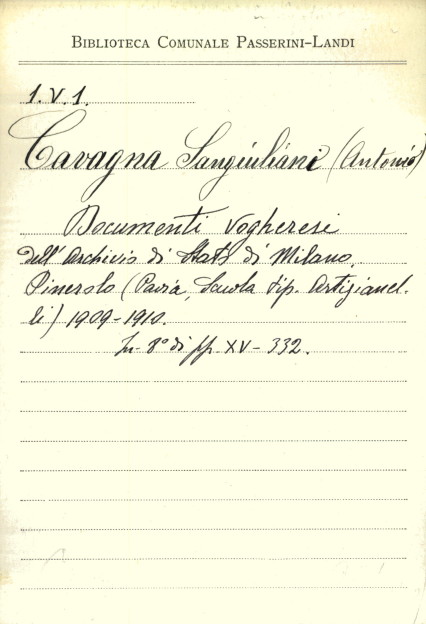 BIBLIOTECA COMUNALE PASSERINI-LANDI
1.V.1.
Cavagna Sangiuliani (Antonio)
Documenti Vogheresi
dell'Archivio di Stato di Milano.
Pinerolo (Pavia, Scuola tip. Artigianel.
li) 1909-1910.
In-8° di pp. XV-332.